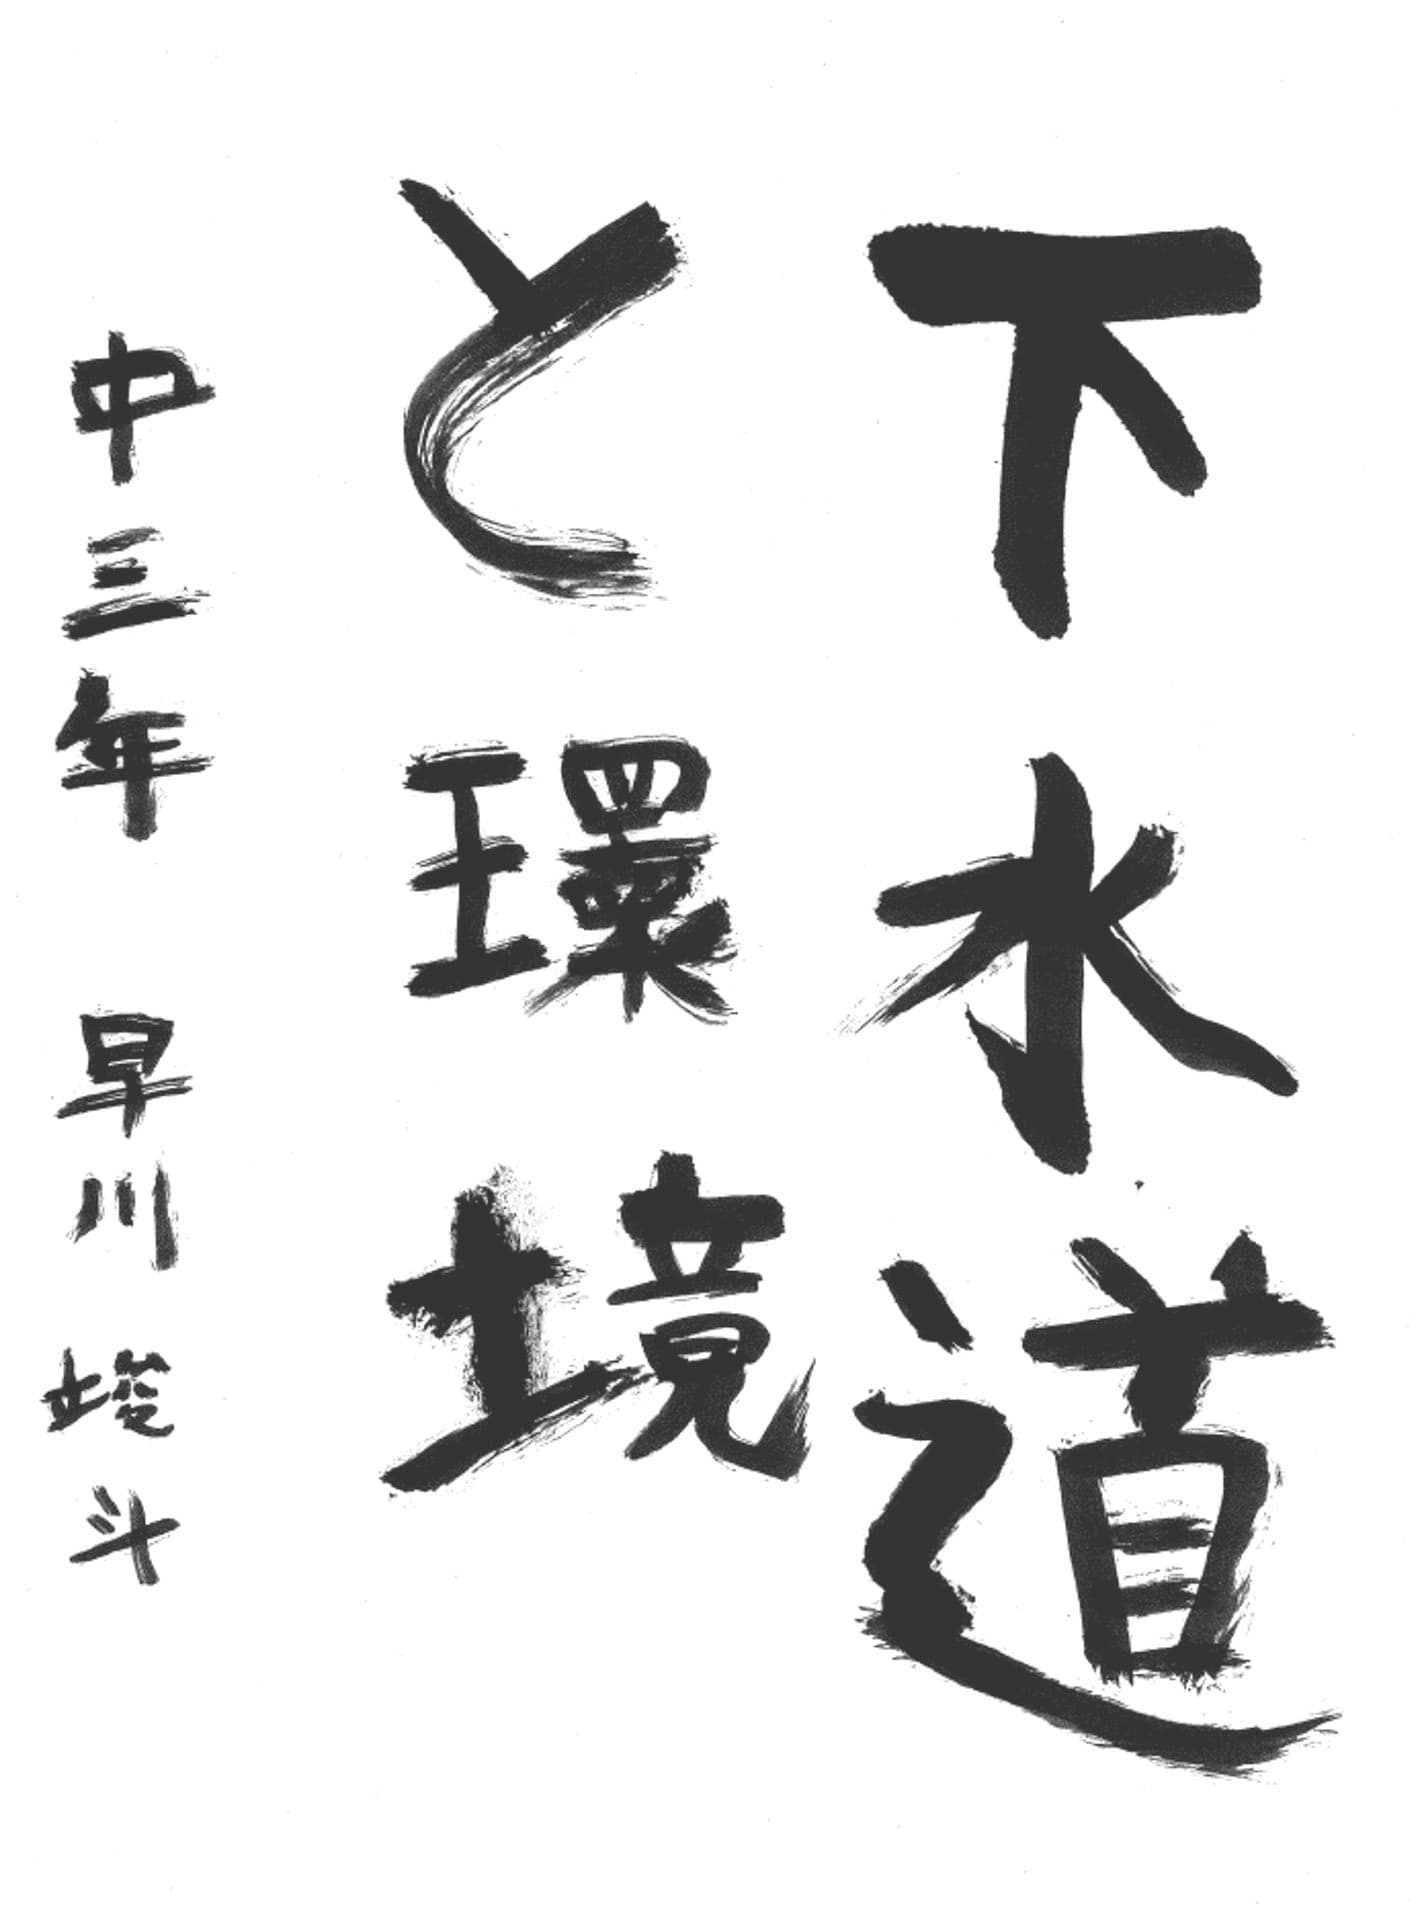 下水道
と環境
中三年 早川竣斗